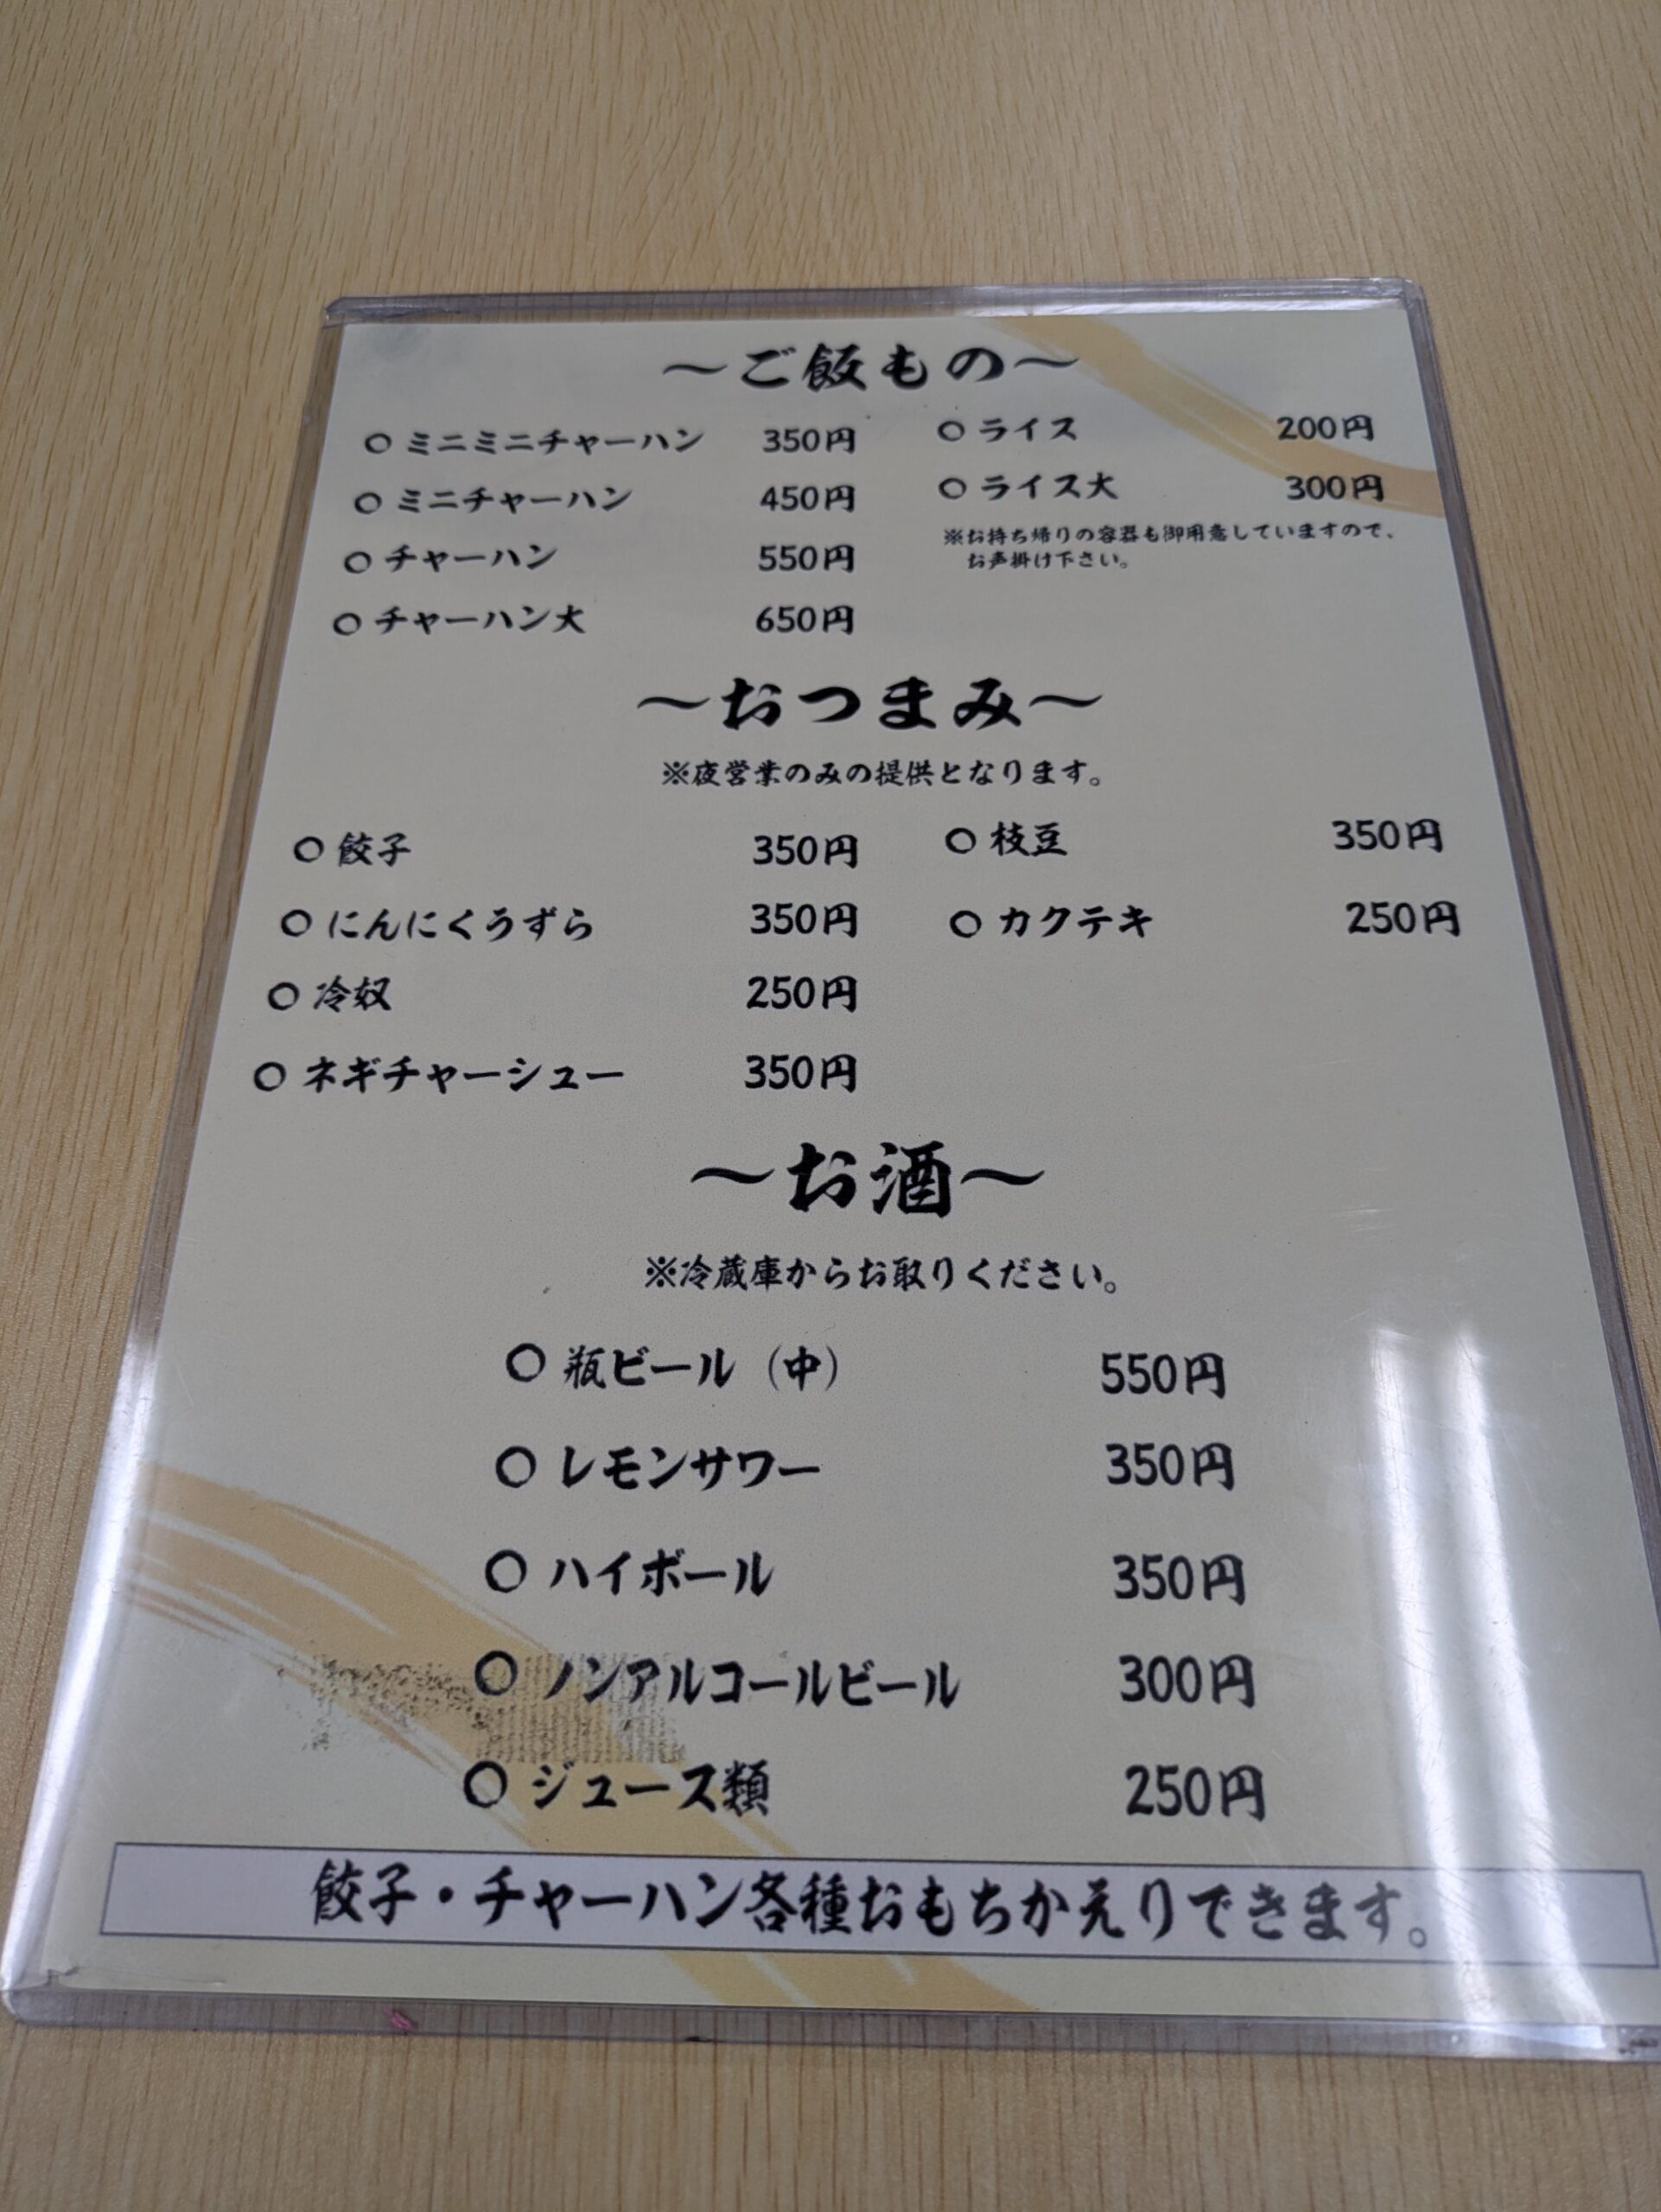 ～ご飯もの～
○ ミニミニチャーハン 350円
○ ミニチャーハン 450円
○ チャーハン 550円
○ チャーハン大 650円
○ ライス 200円
○ ライス大 300円
※お持ち帰りの容器も御用意していますので、
お声掛け下さい。
～おつまみ～
※夜営業のみの提供となります。
○ 餃子 350円
○ にんにくうずら 350円
○ 冷奴 250円
○ ネギチャーシュー 350円
○ 枝豆 350円
○ カクテキ 250円
～お酒～
※冷蔵庫からお取りください。
○ 瓶ビール（中） 550円
○ レモンサワー 350円
○ ハイボール 350円
○ ノンアルコールビール 300円
○ ジュース類 250円
餃子・チャーハン各種おもちかえりできます。